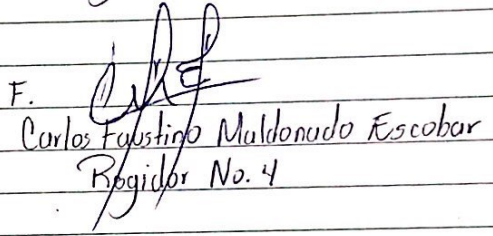 F.
Carlos Faustino Maldonado Escobar
Regidor No. 4